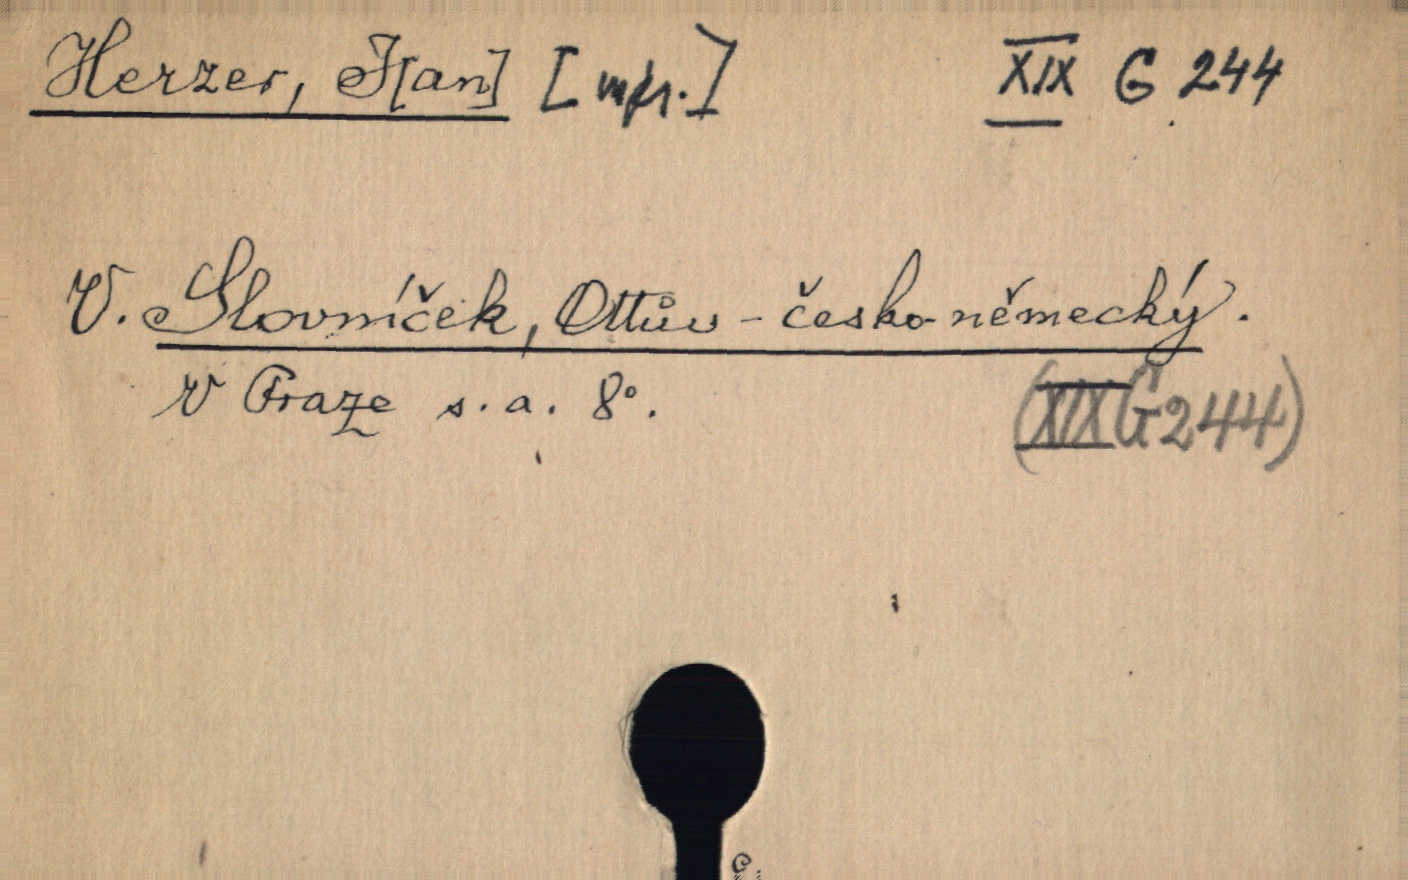 Herzer, J[an] [mpr.] XIX G 244
V. Slovníček, Ottův - česko-německý.
V Praze s. a. 8°.
(XIX G 244)